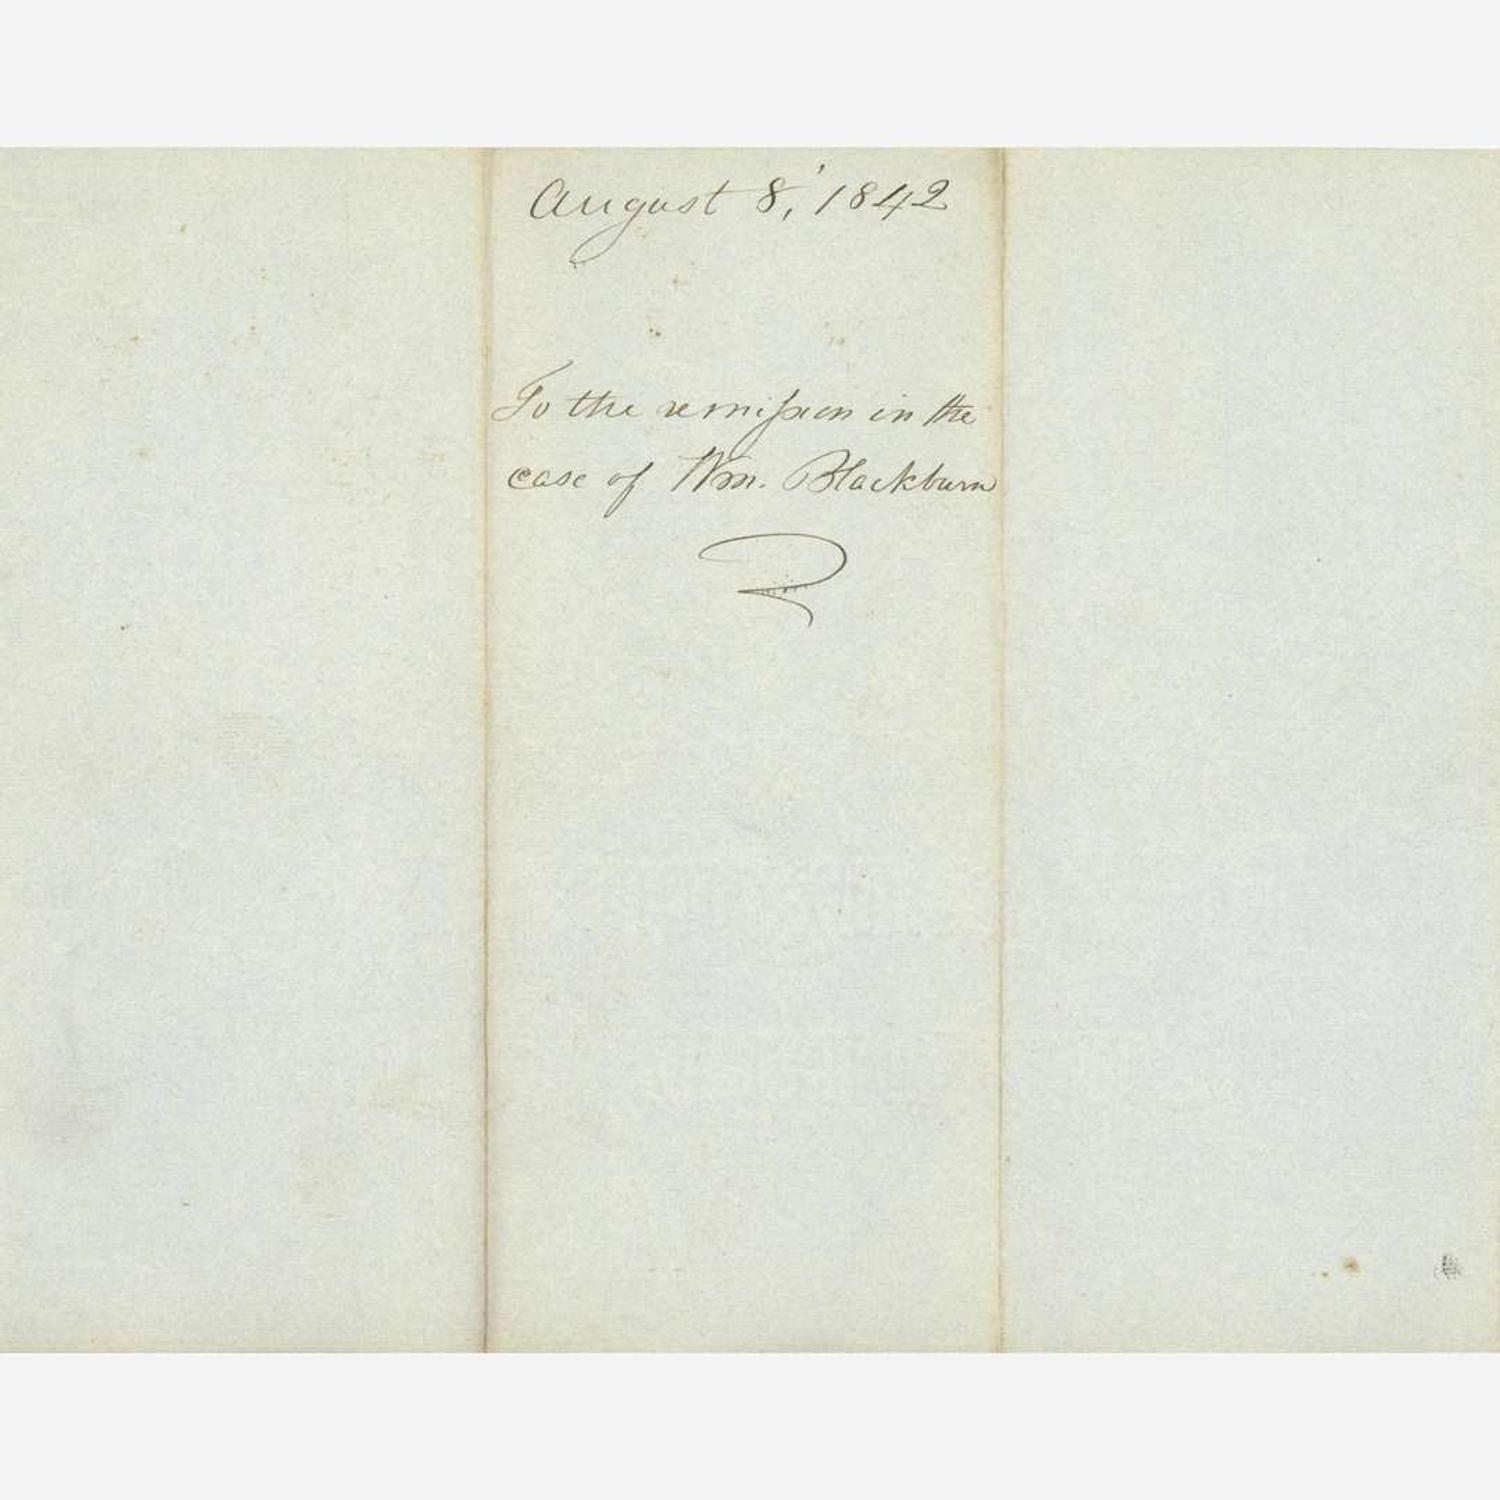 August 8, 1842
To the remission in the
case of Wm. Blackburn